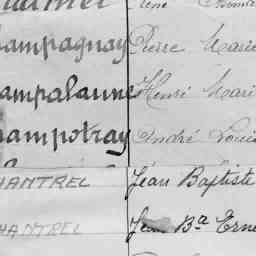 ampagnay Pierre Marie
ampalaune Henri Mari
hampotray André Louis
HANTREL Jean Baptiste
HANTREL Jean Bª Erne